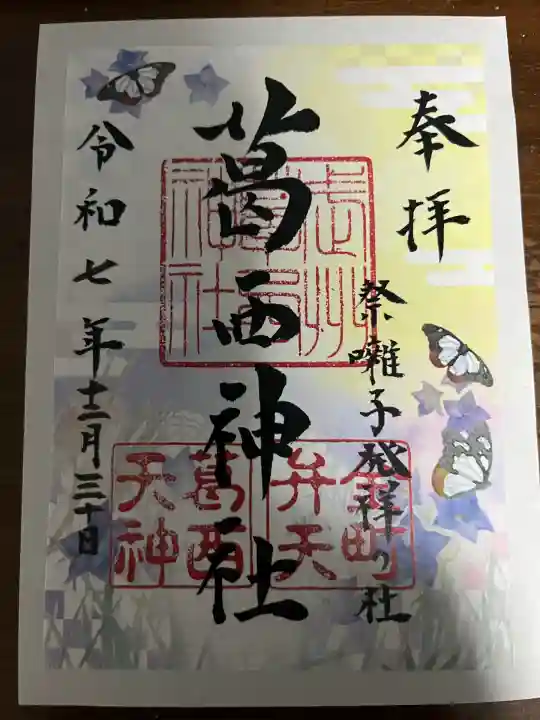 奉拝
祭囃子発祥の社
葛西神社
武州葛西神社
金町弁天
葛西天神
令和七年十二月三十日